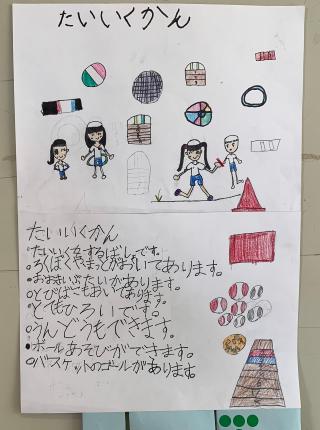 たいいくかん
たいいくかん
・たいいくをするばしょです。
・ろくぼくやまっとがおいてあります。
・おおきいぶたいがあります。
・とびばこもおいてあります。
・とてもひろいです。
・うんどうもできます。
・ボールあそびができます。
・バスケットのゴールがあります。